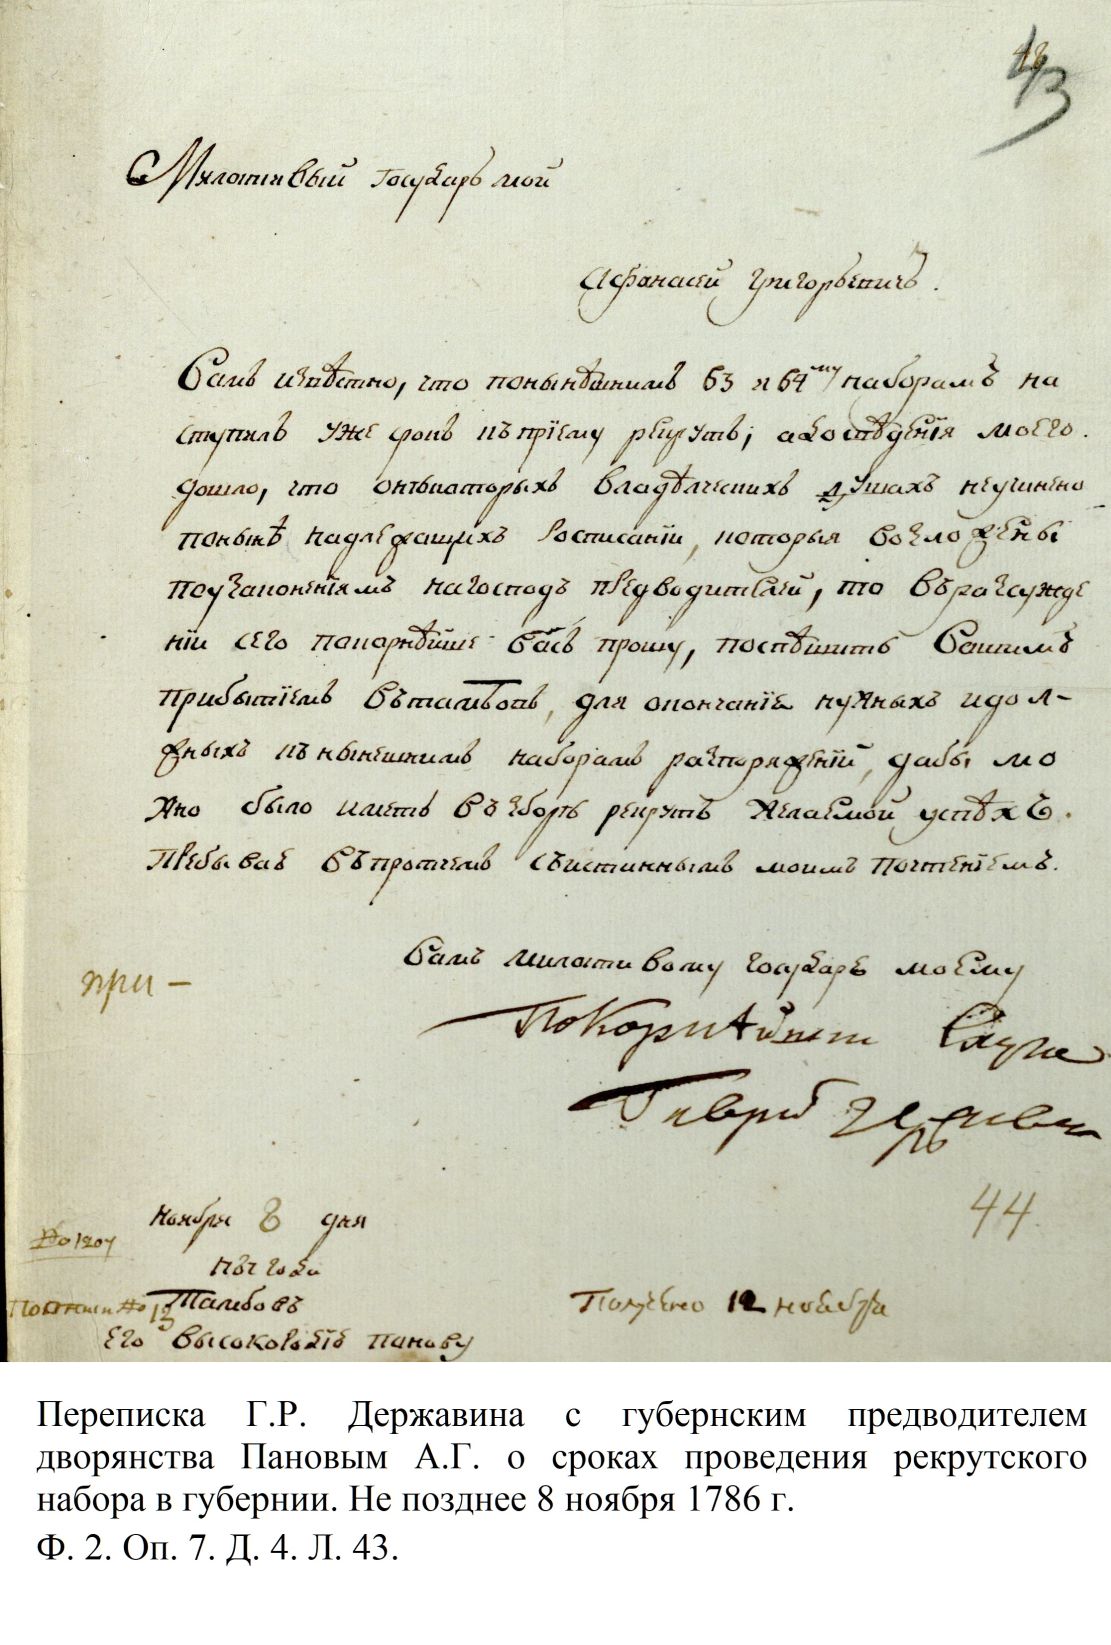 43
Милостивый Государь мой
Афанасей Григорьевичь.
Вамъ извѣстно, что понынѣшнимъ 63 и 64му наборамъ на
ступилъ уже срокъ къ приему рекрутъ; а до свѣдения моего
дошло, что онѣкоторыхъ владѣлческихъ душахъ неучинено
понынѣ надлежащихъ росписаній, которыя возложены
поузаконениямъ нагосподъ предводителей, то въразсужде
нии сего покорнѣйше васъ прошу, поспѣшить вашимъ
прибытиемъ вътамбовъ, для окончание нужныхъ идол-
жныхъ къ нынешнимъ наборамъ распоряженій, дабы мо
жно было иметь въ зборѣ рекрутъ желаемой успѣхъ.
Пребывая въпротчемъ съистиннымъ моимъ почтениемъ.
Вамъ милостивому государь моему
Покорнѣйши Слуга
Гаври Державин
при –
Ноября 8 дня
44
No 1207
года
Тамбовъ
Получено 12 ноября
Его Высокородие Панову
Переписка Г.Р. Державина с губернским предводителем
дворянства Пановым А.Г. о сроках проведения рекрутского
набора в губернии. Не позднее 8 ноября 1786 г.
Ф. 2. Оп. 7. Д. 4. Л. 43.